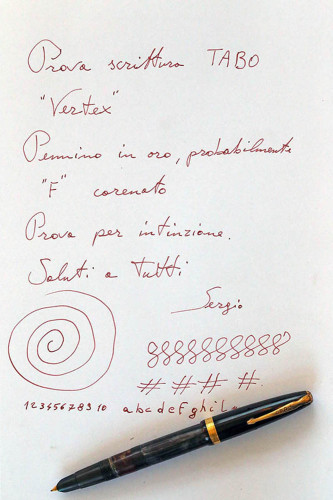 Prova scrittura TABO
"Vertex"
Pennino in oro, probabilmente
"F" corenato
Prova per intinzione.
Saluti a tutti
Sergio
# # # #
1 2 3 4 5 6 7 8 9 10 a b c d e F g h i L